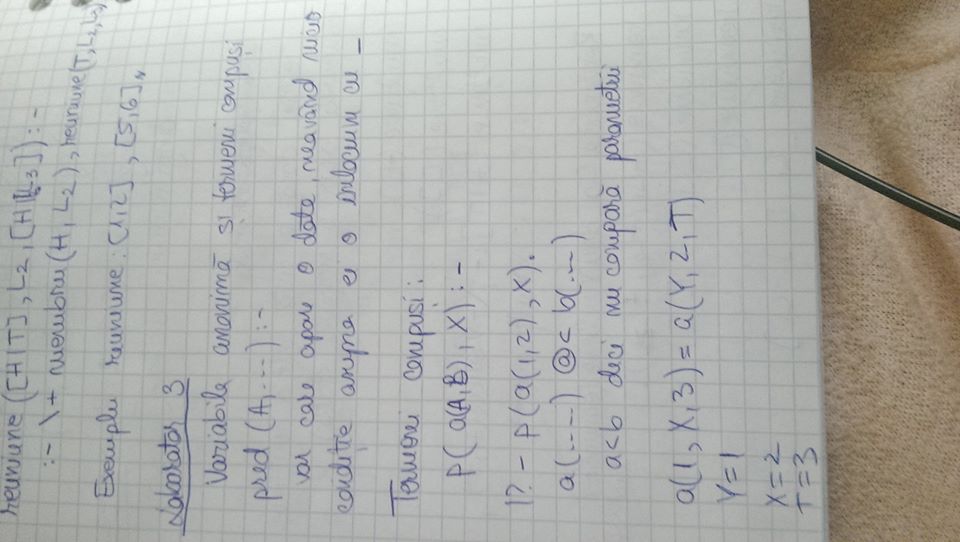 reuniune ([H|T], L2, [H|L3]) :-
:- \+ membru (H, L2), reuniune(T, L2, L3)
Exemplu reuniune: [1,2], [5,6],
Laborator 3
Variabila anonimă și termeni compuși
pred (A, ...) :-
var care apare o dată, neavând nicio
condiție asupra ei o înlocuim cu _
Termeni compuși:
p( a(A,B), X) :-
|? - p(a(1,2), X).
a(.....) @< b(...)
a<b deci nu compară parametrii
a(1, X, 3) = a(Y, 2, T)
Y=1
X=2
T=3